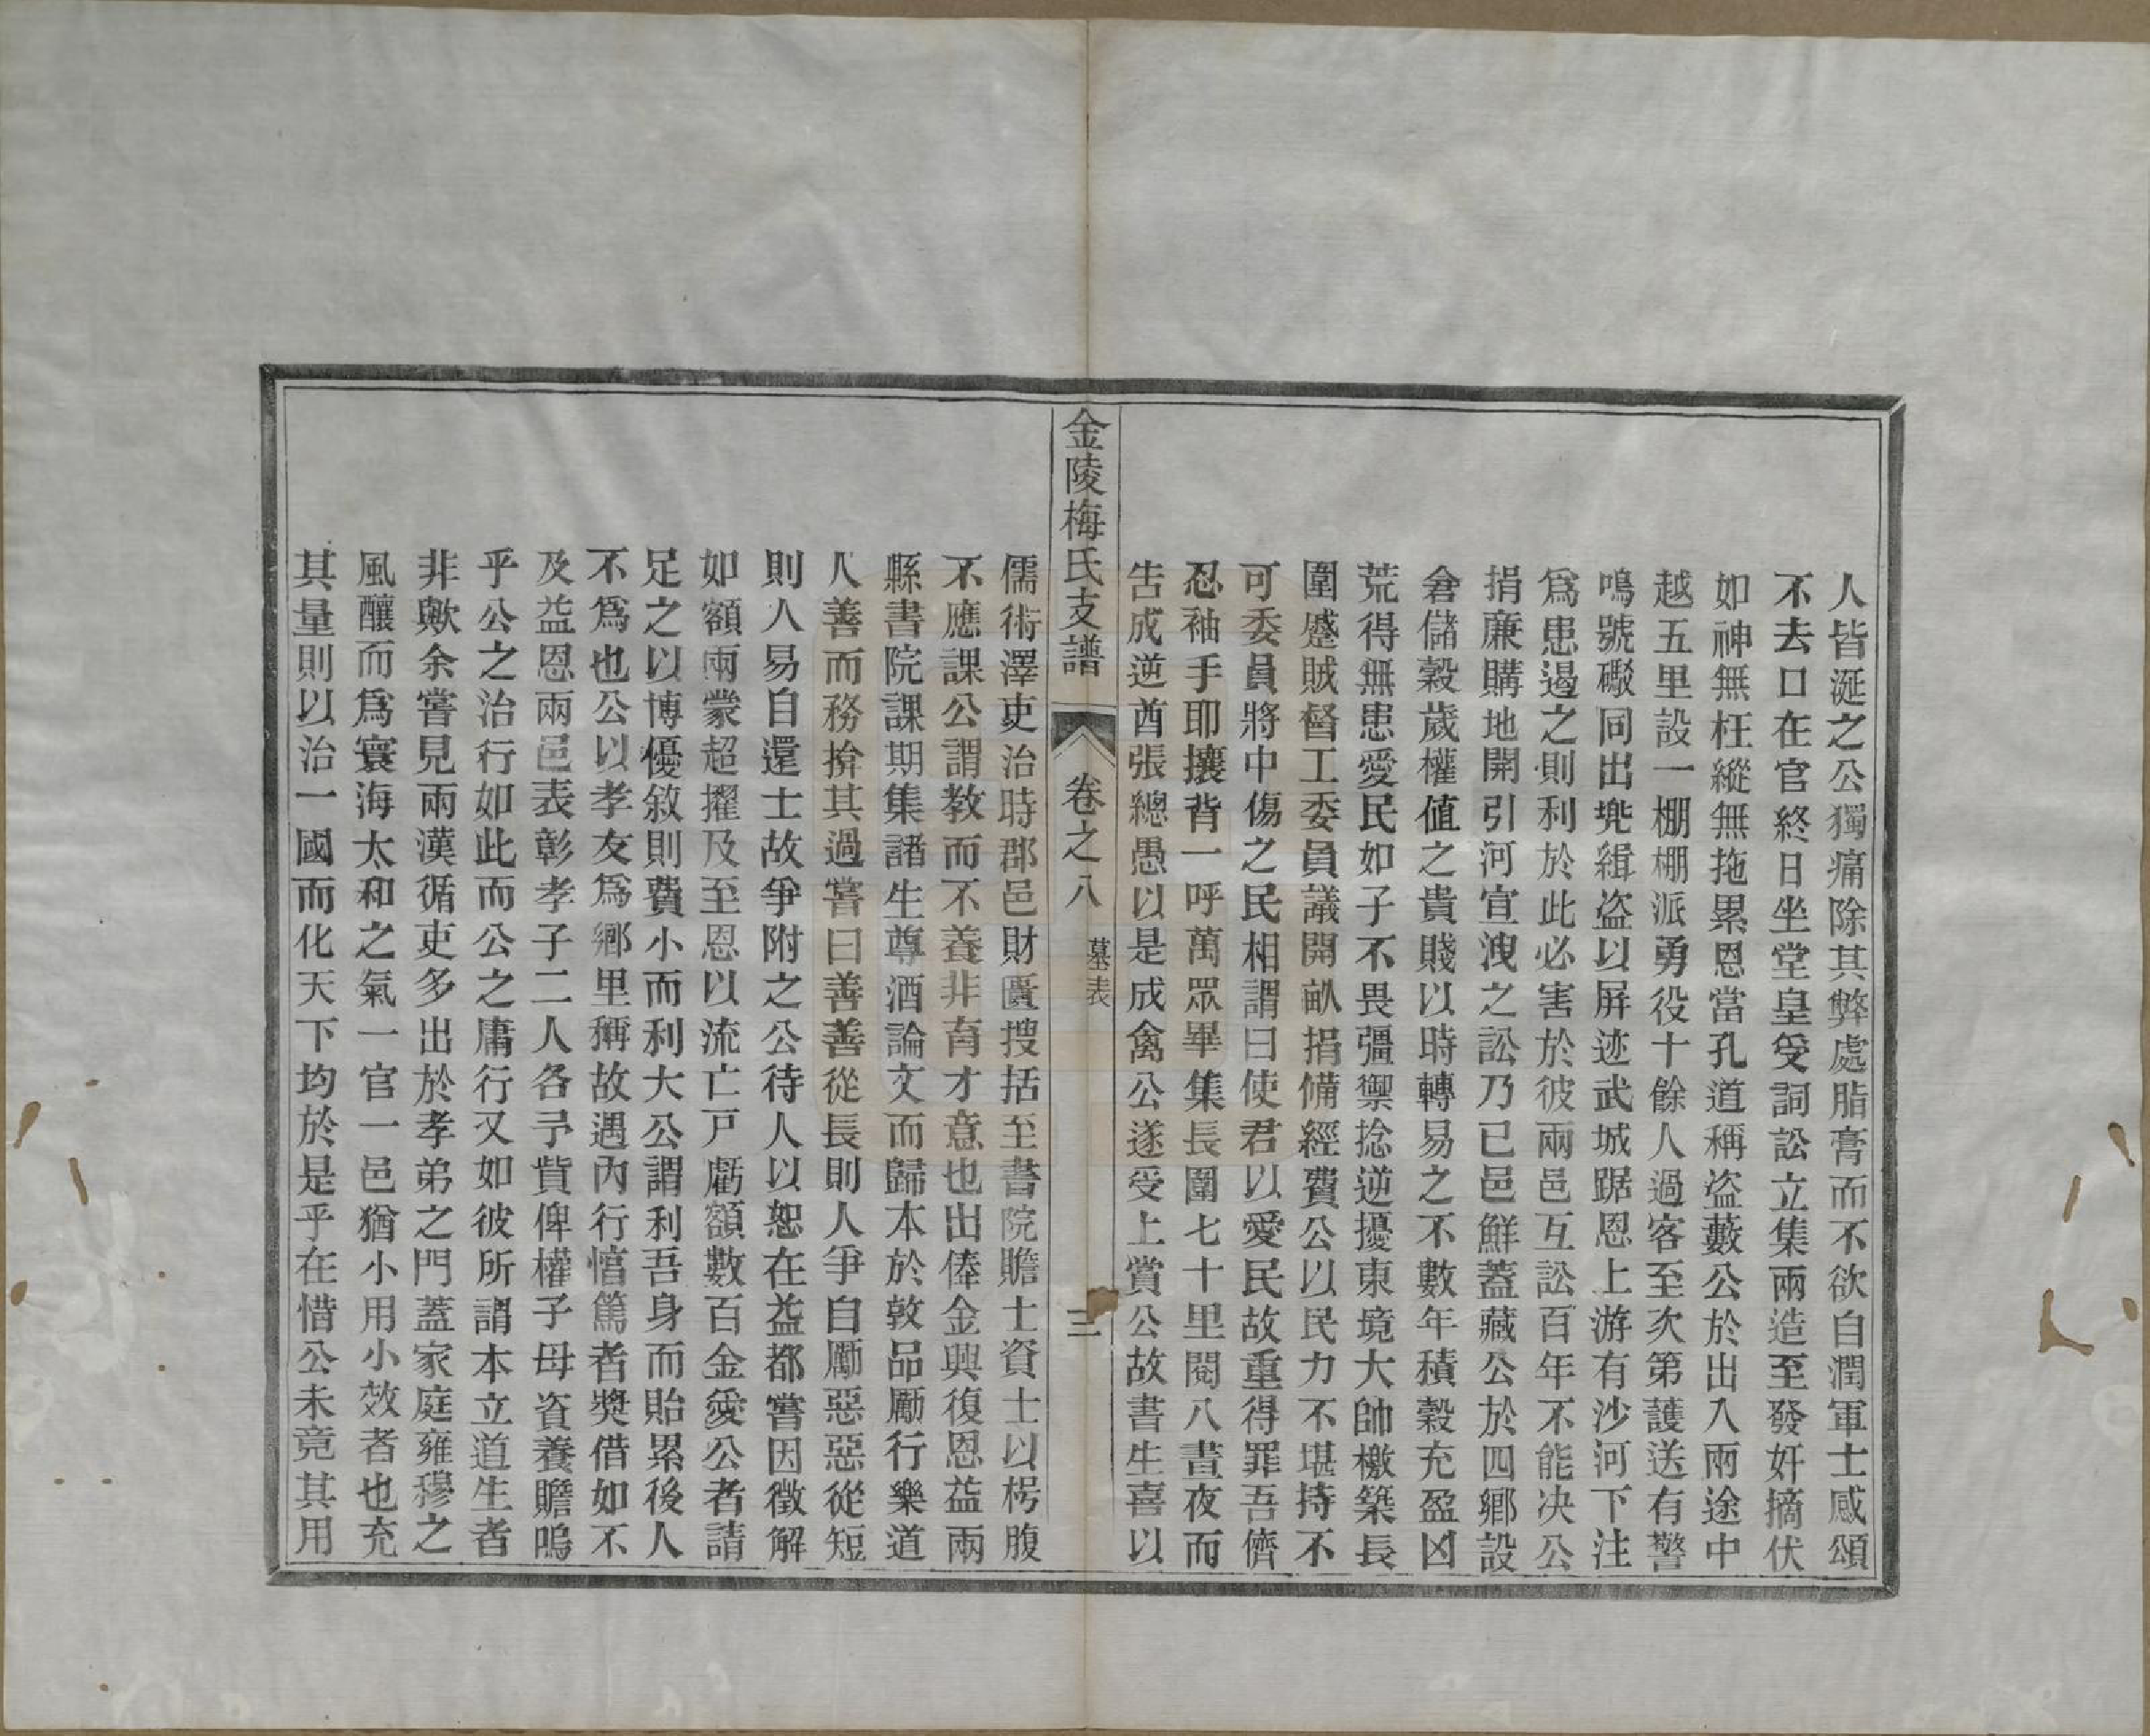 人皆涎之公獨痛除其弊處脂膏而不欲自潤軍士感頌
不去口在官終日坐堂皇受詞訟立集兩造至發奸摘伏
如神無枉縱無拖累恩當孔道稱盜藪公於出入兩途中
越五里設一棚棚派勇役十餘人過客至次第護送有警
鳴號礮同出兠緝盜以屏迹武城踞恩上游有沙河下注
爲患遏之則利於此必害於彼兩邑互訟百年不能决公
捐廉購地開引河宣洩之訟乃已邑鮮蓋藏公於四鄉設
倉儲榖歲權值之貴賤以時轉易之不數年積榖充盈凶
荒得無患愛民如子不畏彊禦捻逆擾東境大帥檄築長
圍蹙賊督工委員議開畝捐備經費公以民力不堪持不
可委員將中傷之民相謂曰使君以愛民故重得罪吾儕
忍袖手耶攘背一呼萬眾畢集長圍七十里閱八晝夜而
告成逆酋張總愚以是成禽公遂受上賞公故書生喜以
金陵梅氏支譜 卷之八 墓表 三
儒術澤吏治時郡邑財匱搜括至書院贍士資士以枵腹
不應課公謂教而不養非育才意也出俸金興復恩益兩
縣書院課期集諸生尊酒論文而歸本於敦品勵行樂道
人善而務揜其過嘗曰善善從長則人爭自勵惡惡從短
則人易自還士故爭附之公待人以恕在益都嘗因徵解
如額兩蒙超擢及至恩以流亡戸虧額數百金愛公者請
足之以博優敘則費小而利大公謂利吾身而貽累後人
不爲也公以孝友爲鄉里稱故遇內行愭篤者奬借如不
及益恩兩邑表彰孝子二人各予貲俾權子母資養贍嗚
乎公之治行如此而公之庸行又如彼所謂本立道生者
非歟余嘗見兩漢循吏多出於孝弟之門蓋家庭雍穆之
風釀而爲寰海太和之氣一官一邑猶小用小效者也充
其量則以治一國而化天下均於是乎在惜公未竟其用